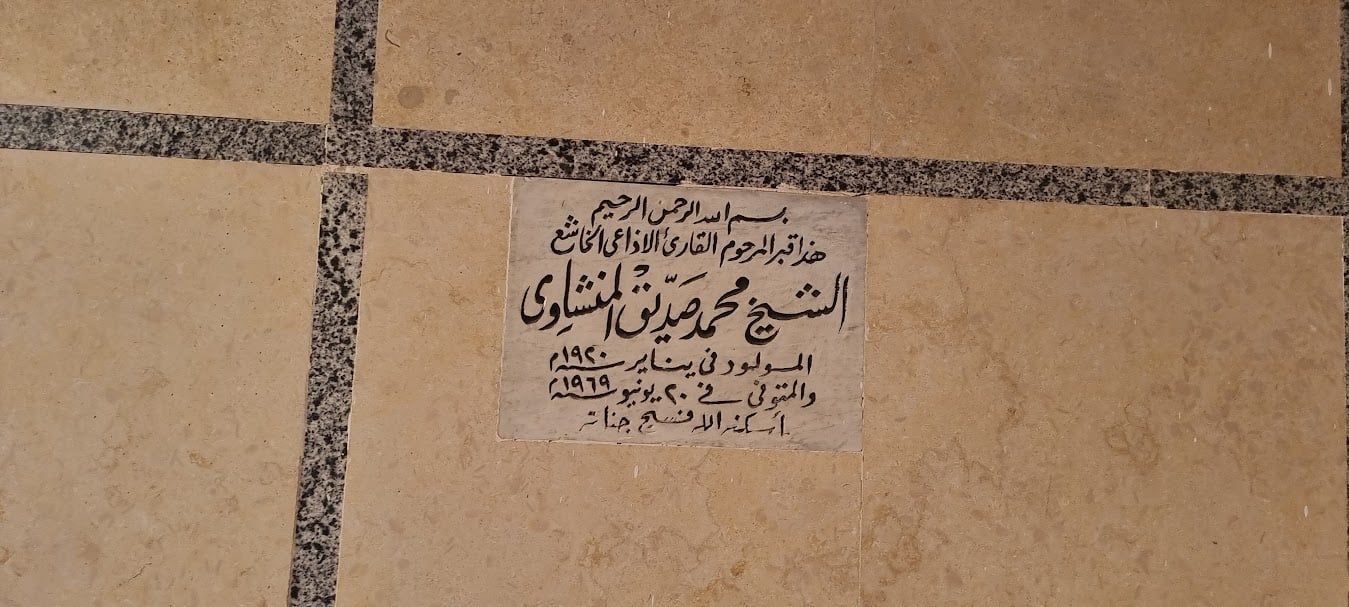 بسم الله الرحمن الرحيم
هذا قبر المرحوم القارئ الاذاعى الخاشع
الشيخ محمد صدّيق المنشاوى
المولود فى يناير سنة ١٩٢٠م
والمتوفى فى ٢٠ يونيو سنة ١٩٦٩م
أسكنه الله فسيح جناته